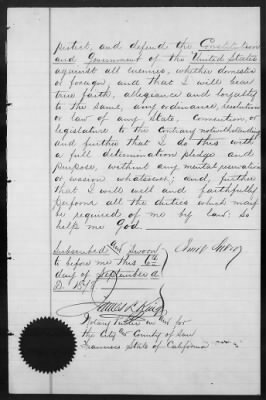 protect, and defend the Constitution
and Government of the United States
against all enemies, whether domestic
or foreign, and that I will bear
true faith, allegiance and loyalty
to the same, any ordinance, resolution
or law of any State, Convention or
legislature to the contrary notwithstanding
and further that I do this with
a full determination pledge and
purpose, without any mental reservation
or evasion whatsoever; and, further
that I will well and faithfully
perform all the duties which may
be required of me by law. So
help me God.
Subscribed and sworn
to before me this
day of September A.
D.
James L. King
Notary Public in and for
the City and County of San
Francisco State of California